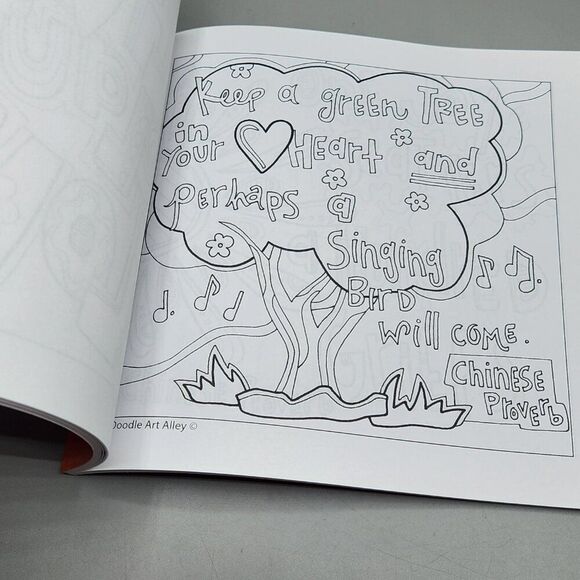 Keep a green TREE
in
your Heart and
perhaps a
Singing
BIRD
will COME.
Chinese
Proverb
Doodle Art Alley ©